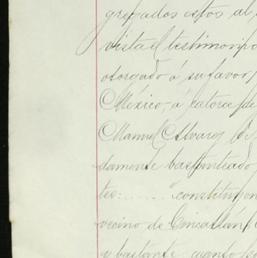 gregados estos al
vista el testimonio
otorgado á su favor,
México, á catorce de
Manuel Alvarez
damente bastanteado
tes:...... constituyen
vecino de Cineatlan
y bastante cuanto